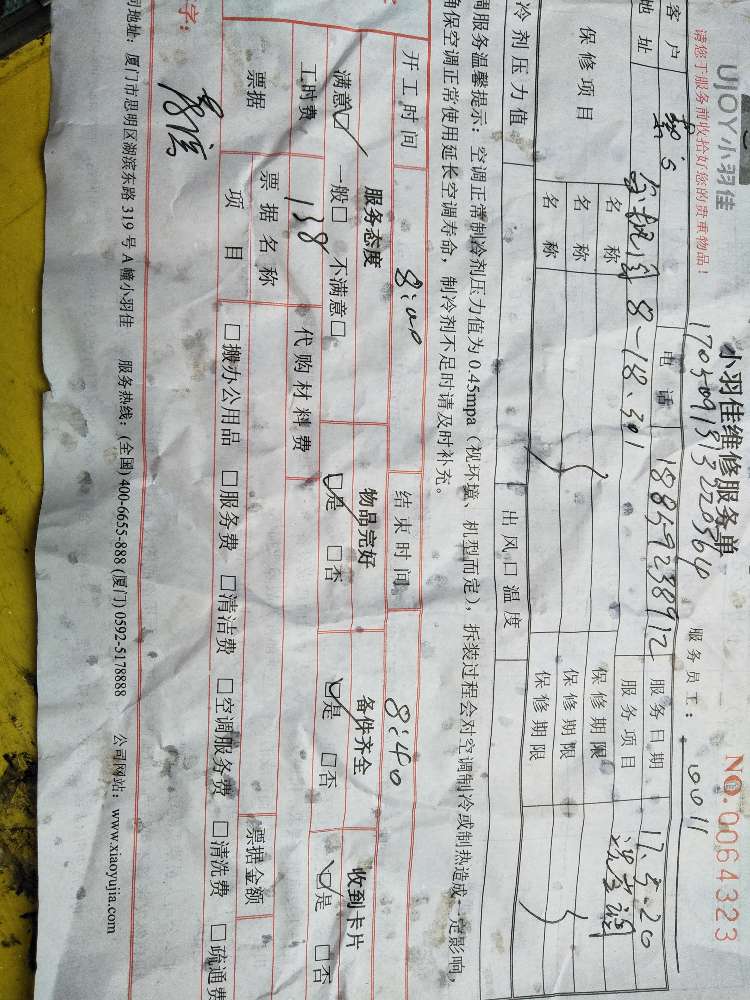 UJOY小羽佳
小羽佳维修服务单
NO.0064323
请您于服务前收拾好您的贵重物品！
服务员工：0011
客户
电话 18859238912
服务日期 17.5.20
地址 8-18.301
服务项目
保修项目
名称 保修期限
名称 保修期限
名称 保修期限
冷剂压力值
出风口温度
调服务温馨提示：空调正常制冷剂压力值为0.45mpa（视环境、机型而定），拆装过程会对空调制冷或制热造成一定影响，
确保空调正常使用延长空调寿命，制冷剂不足时请及时补充。
开工时间 8:00 结束时间 8:40
服务态度 物品完好 备件齐全 收到卡片
满意☑ 一般□ 不满意□ ☑是 □否 ☑是 □否 ☑是 □否
工时费 138 代购材料费
票据 票据名称 票据金额
项目 □搬办公用品 □服务费 □清洁费 □空调服务费 □清洗费 □疏通费
字：
司地址：厦门市思明区湖滨东路319号A幢小羽佳 服务热线：(全国) 400-6655-888 (厦门) 0592-5178888 公司网站：www.xiaoyujia.com